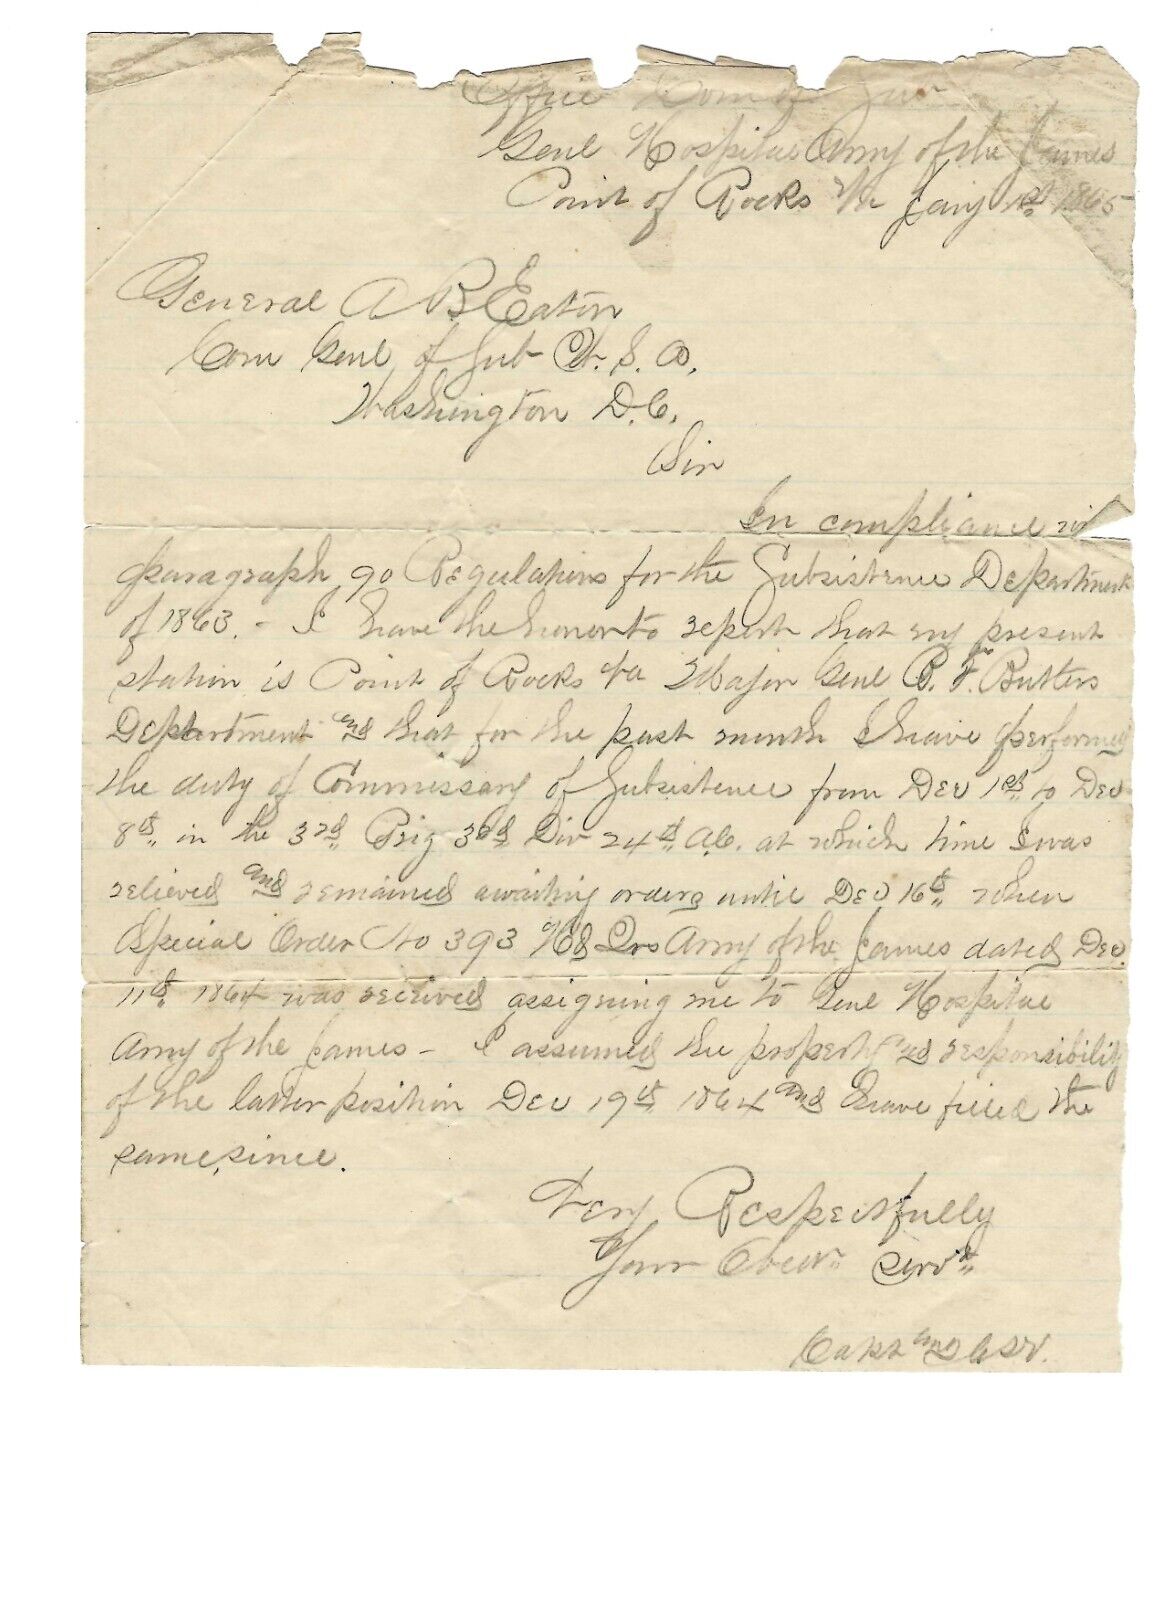 Office Com of Sub
Genl Hospital Army of the James
Point of Rocks Va Jany 1st 1865
General A B Eaton
Com Genl of Sub U. S. A.
Washington D.C.
Sir
In compliance wit
paragraph 90 Regulations for the Subsistence Department
of 1863. - I have the honor to report that my present
station is Point of Rocks Va Major Genl B. F. Butlers
Department and that for the past month I have performed
the duty of Commissary of Subsistence from Dec 1st to Dec
8th in the 3rd Brig 3rd Div 24th A.C. at which time I was
relieved and remained awaiting orders until Dec 16th when
Special Order No 393 Hd Qrs Army of the James dated Dec.
11th 1864 was received assigning me to Genl Hospital
Army of the James - I assumed the property and responsibility
of the latter position Dec 19th 1864 and have filled the
same, since.
Very Respectfully
Your Obedt Servt
Capt and C.S.V.